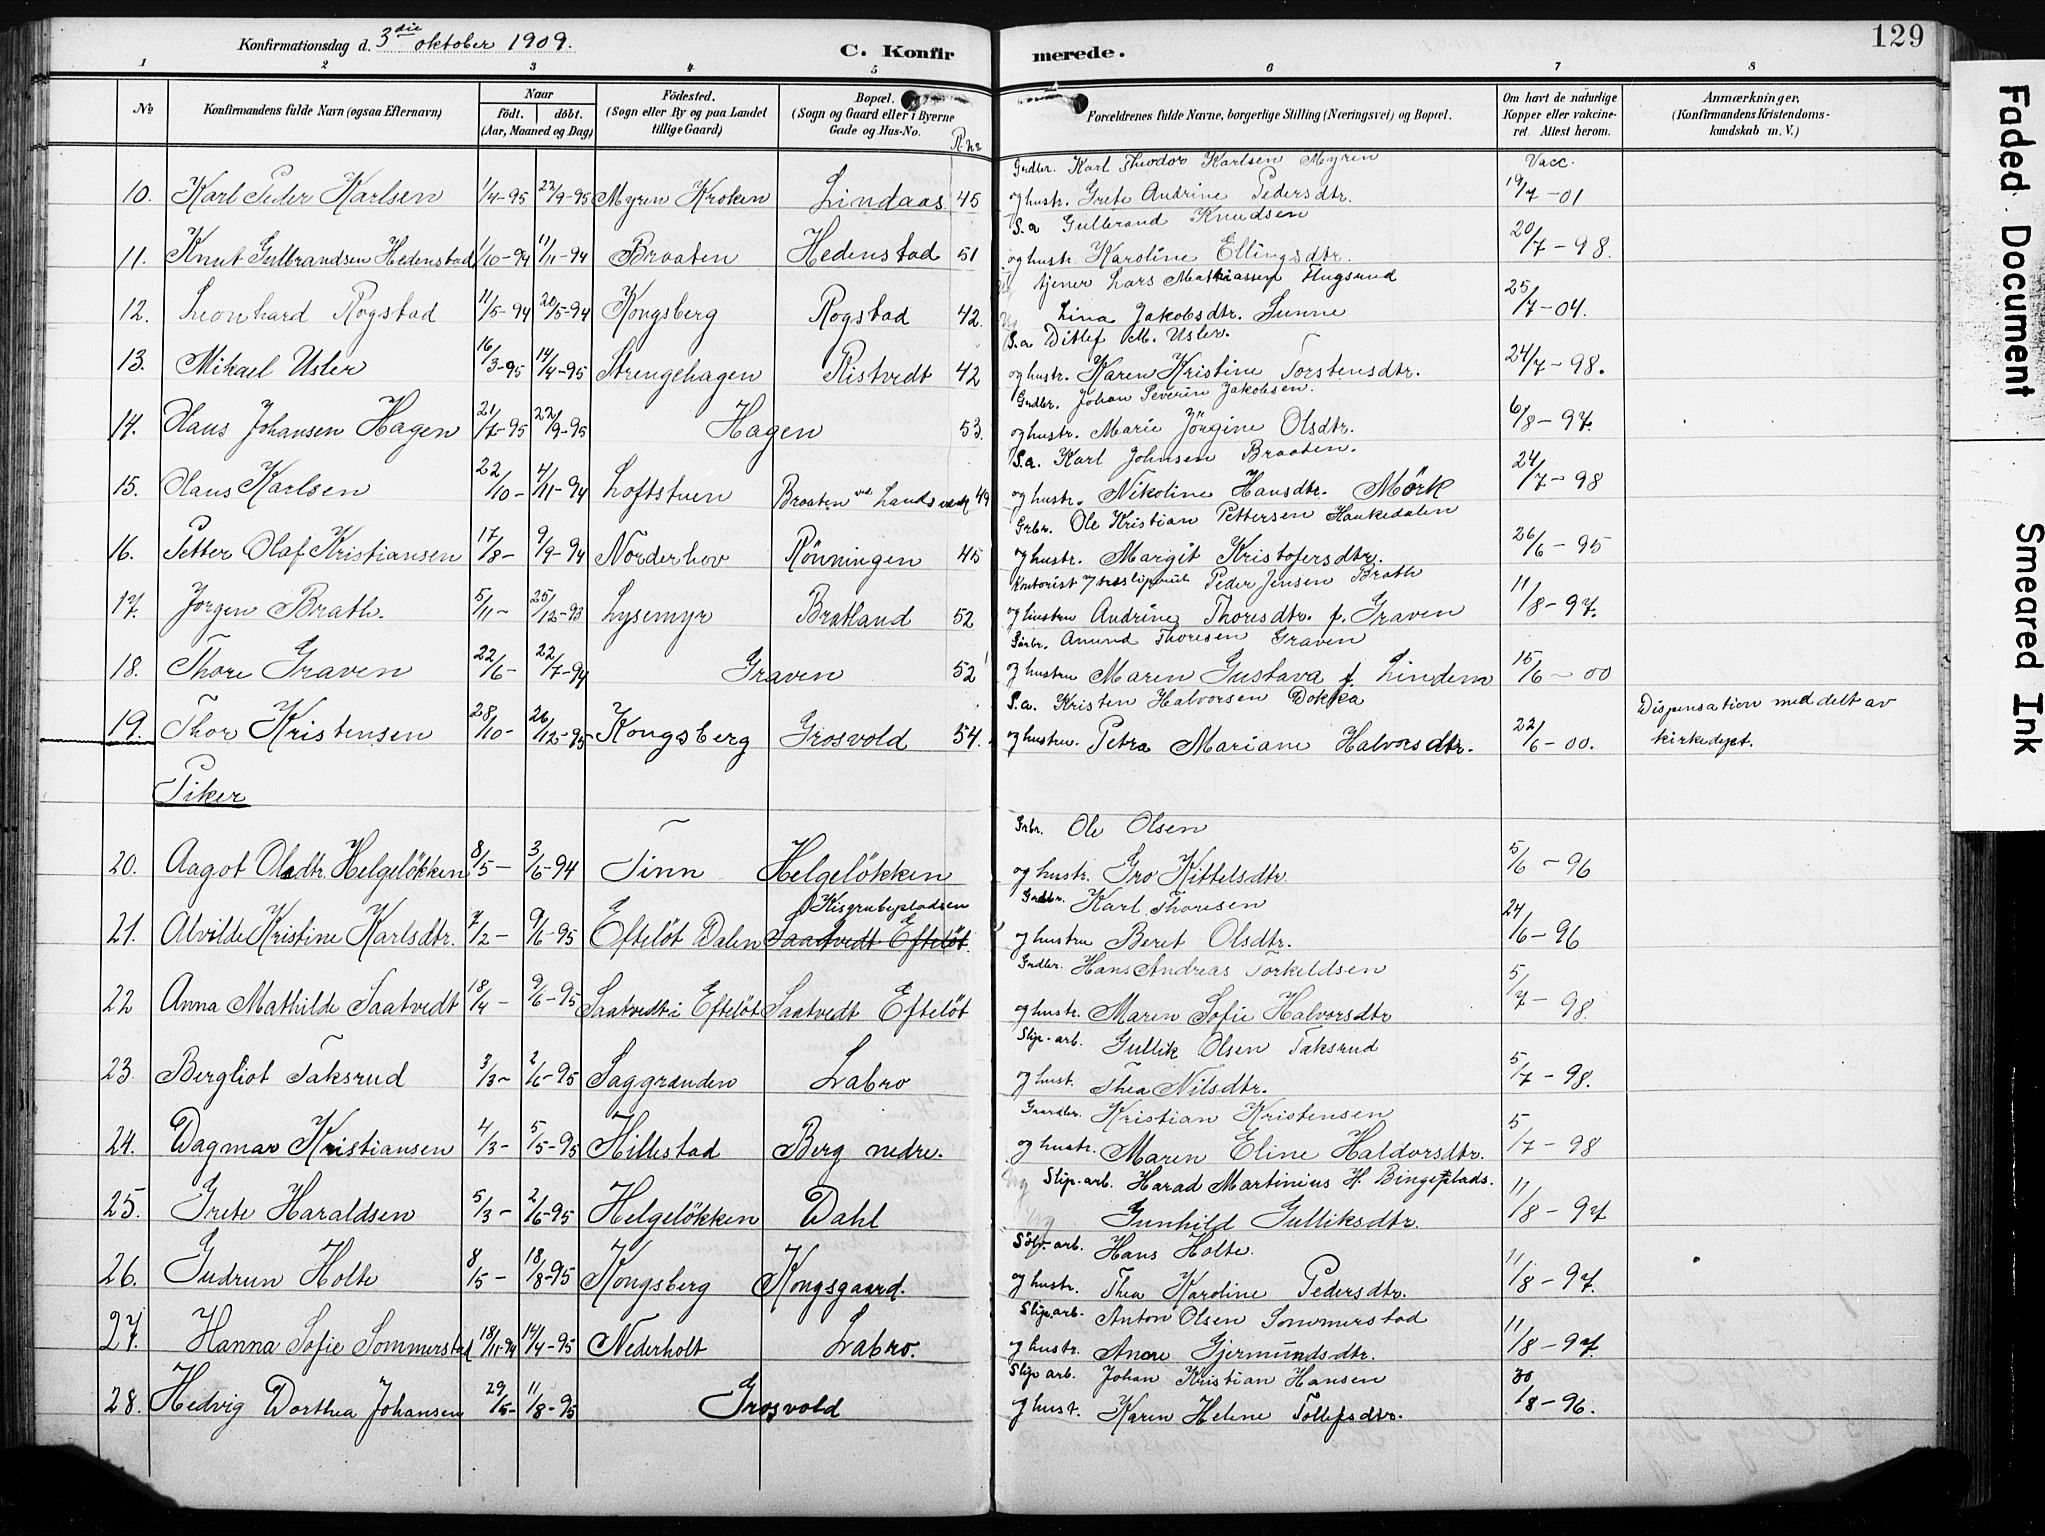 129
Konfirmationsdag d. 3die oktober 1909.
C. Konfirmerede.
1 2 3 4 5 6 7 8
No
Konfirmandens fulde Navn (ogsaa Efternavn)
Naar
født. døbt.
(Aar, Maaned og Dag)
Fødested.
(Sogn eller By og paa Landet tillige Gaard)
Bopæl.
(Sogn og Gaard eller i Byerne Gade og Hus-No.
R. nr
Forældrenes fulde Navne, borgerlige Stilling (Næringsvei) og Bopæl.
Om havt de naturlige Kopper eller vakcineret. Attest herom.
Anmærkninger,
(Konfirmandens Kristendomskundskab m. V.)
Grdbr. Karl Theodor Karlsen Myren Vacc.
10. Karl Peder Karlsen 1/4-95 22/9-95 Myren Kroken Lindaas 45 og hustr. Grete Andrine Pedersdtr. 19/7-01
S.a Gulbrand Knudsen
11. Knut Gulbrandsen Hedenstad 1/10-94 11/11-94 Braaten Hedenstad 51 og hustr. Karoline Ellingsdtr. 20/7-98.
tjener Lars Mathiassen Flugsrud
12. Leonhard Rogstad 11/5-94 20/5-94 Kongsberg Rogstad 42. Lina Jakobsdtr. Lunne 25/7-04.
S.a Ditlef M. Usler.
13. Mikael Usler 16/3-95 14/4-95 Strengehagen Ristvedt 42 og hustr. Karen Kristine Torstensdtr. 24/7-98.
Grdbr. Johan Severin Jakobsen.
14. Olaus Johansen Hagen 21/7-95 22/9-95 Hagen 53. og hustr. Marie Jörgine Olsdtr. 6/8-97.
S.a. Karl Johnsen Braaten.
15. Olaus Karlsen 22/10- 4/11-94 Loftstuen Braaten ved Landsværk 49 og hustr. Nikoline Hansdtr. Mörk 24/7-98
Grbr. Ole Kristian Pettersen Haukedalen
16. Petter Olaf Kristiansen 17/8- 9/9-94 Norderhov Rönningen 45 og hustr. Margit Kristofersdtr. 26/6-95
Kontorist Peder Jensen Brath
17. Jörgen Brath. 5/11- 25/12-93 Lysemyr Bratland 52 og hustru Andrine Thoresdtr. f. Graven 11/8-97.
Amund Thoresen Graven
18. Thore Graven 22/6- 22/7-94 Graven 52 og hustru Maren Gustava f. Lindem 15/6-00
S.a. Kristen Halvorsen Dokka
19. Thor Kristensen 28/10- 26/12-95 Kongsberg Grosvold 54. og hustru. Petra Mariane Halvorsdtr. 22/6-00. Dispensation meddelt av kirkedept.
Piker
Grbr. Ole Olsen
20. Aagot Olsdtr. Helgelökken 8/5- 3/6-94 Tinn Helgelökken og hustr. Gro Kittelsdtr 5/6-96
Kisgrubepladsen Grdbr. Karl Thoresen
21. Alvilde Kristine Karlsdtr. 7/2- 9/6-95 Eftelöt Dalen Saatvedt Eftelöt. og hustru Beret Olsdtr. 24/6-96
Grdbr. Hans Andreas Torkeldsen
22 Anna Mathilde Saatvedt 18/4- 9/6-95 Saatvedt i Eftelöt Saatvedt Eftelöt og hustr. Maren Sofie Halvorsdtr 5/7-98.
Slip-arb. Gullik Olsen Taksrud
23. Bergliot Taksrud 3/3- 2/6-95 Saggrenden Labro og hust. Thea Nilsdtr. 5/7-98.
Gaardbr. Kristian Kristensen
24. Dagmar Kristiansen 4/3- 5/5-95 Hillestad Berg nedre. og hustr. Maren Eline Haldorsdtr. 5/7-98
Slip.arb. Harad Martinius H. Bingeplads.
25. Grete Haraldsen 5/3- 2/6-95 Helgelökken Dahl Gunhild Gulliksdtr. 11/8-97
Sölv-arb. Hans Holte.
26. Gudrun Holte 8/5- 18/8-95 Kongsberg Kongsgaard. og hustr. Thea Karoline Pedersdtr. 11/8-97.
Slip.arb. Anton Olsen Sommerstad
27. Hanna Sofie Sommerstad 18/11-94 14/4-95 Nederholt Labro. og hustr. Anne Gjermundsdtr. 11/8-97.
Slip arb. Johan Kristian Hansen
28. Hedvig Dorthea Johansen 29/5- 11/8-95 Grosvold og hust. Karen Helene Tollefsdtr. 30/8-96.
Faded Document
Smeared Ink